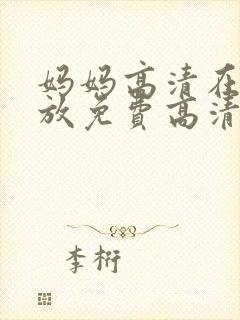 妈妈高清在
放免费高清
李桁